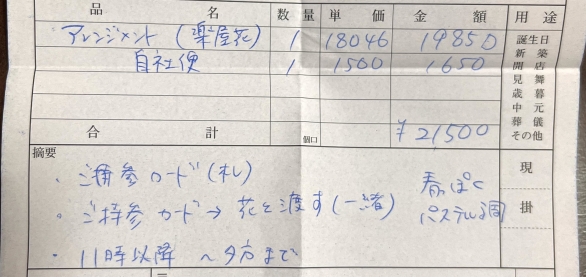 品 名 数 量 単 価 金 額 用 途
アレンジメント (楽屋花) 1 18046 19850
自社便 1 1500 1650
誕生日
新 築
開 店
見 舞
歳 暮
中 元
葬 儀
その他
合 計 個口 ¥21500
摘要
・ご持参カード(札)
・ご持参カード→花と渡す(一緒)
・11時以降 〜夕方まで
春っぽく
パステル調
現
掛